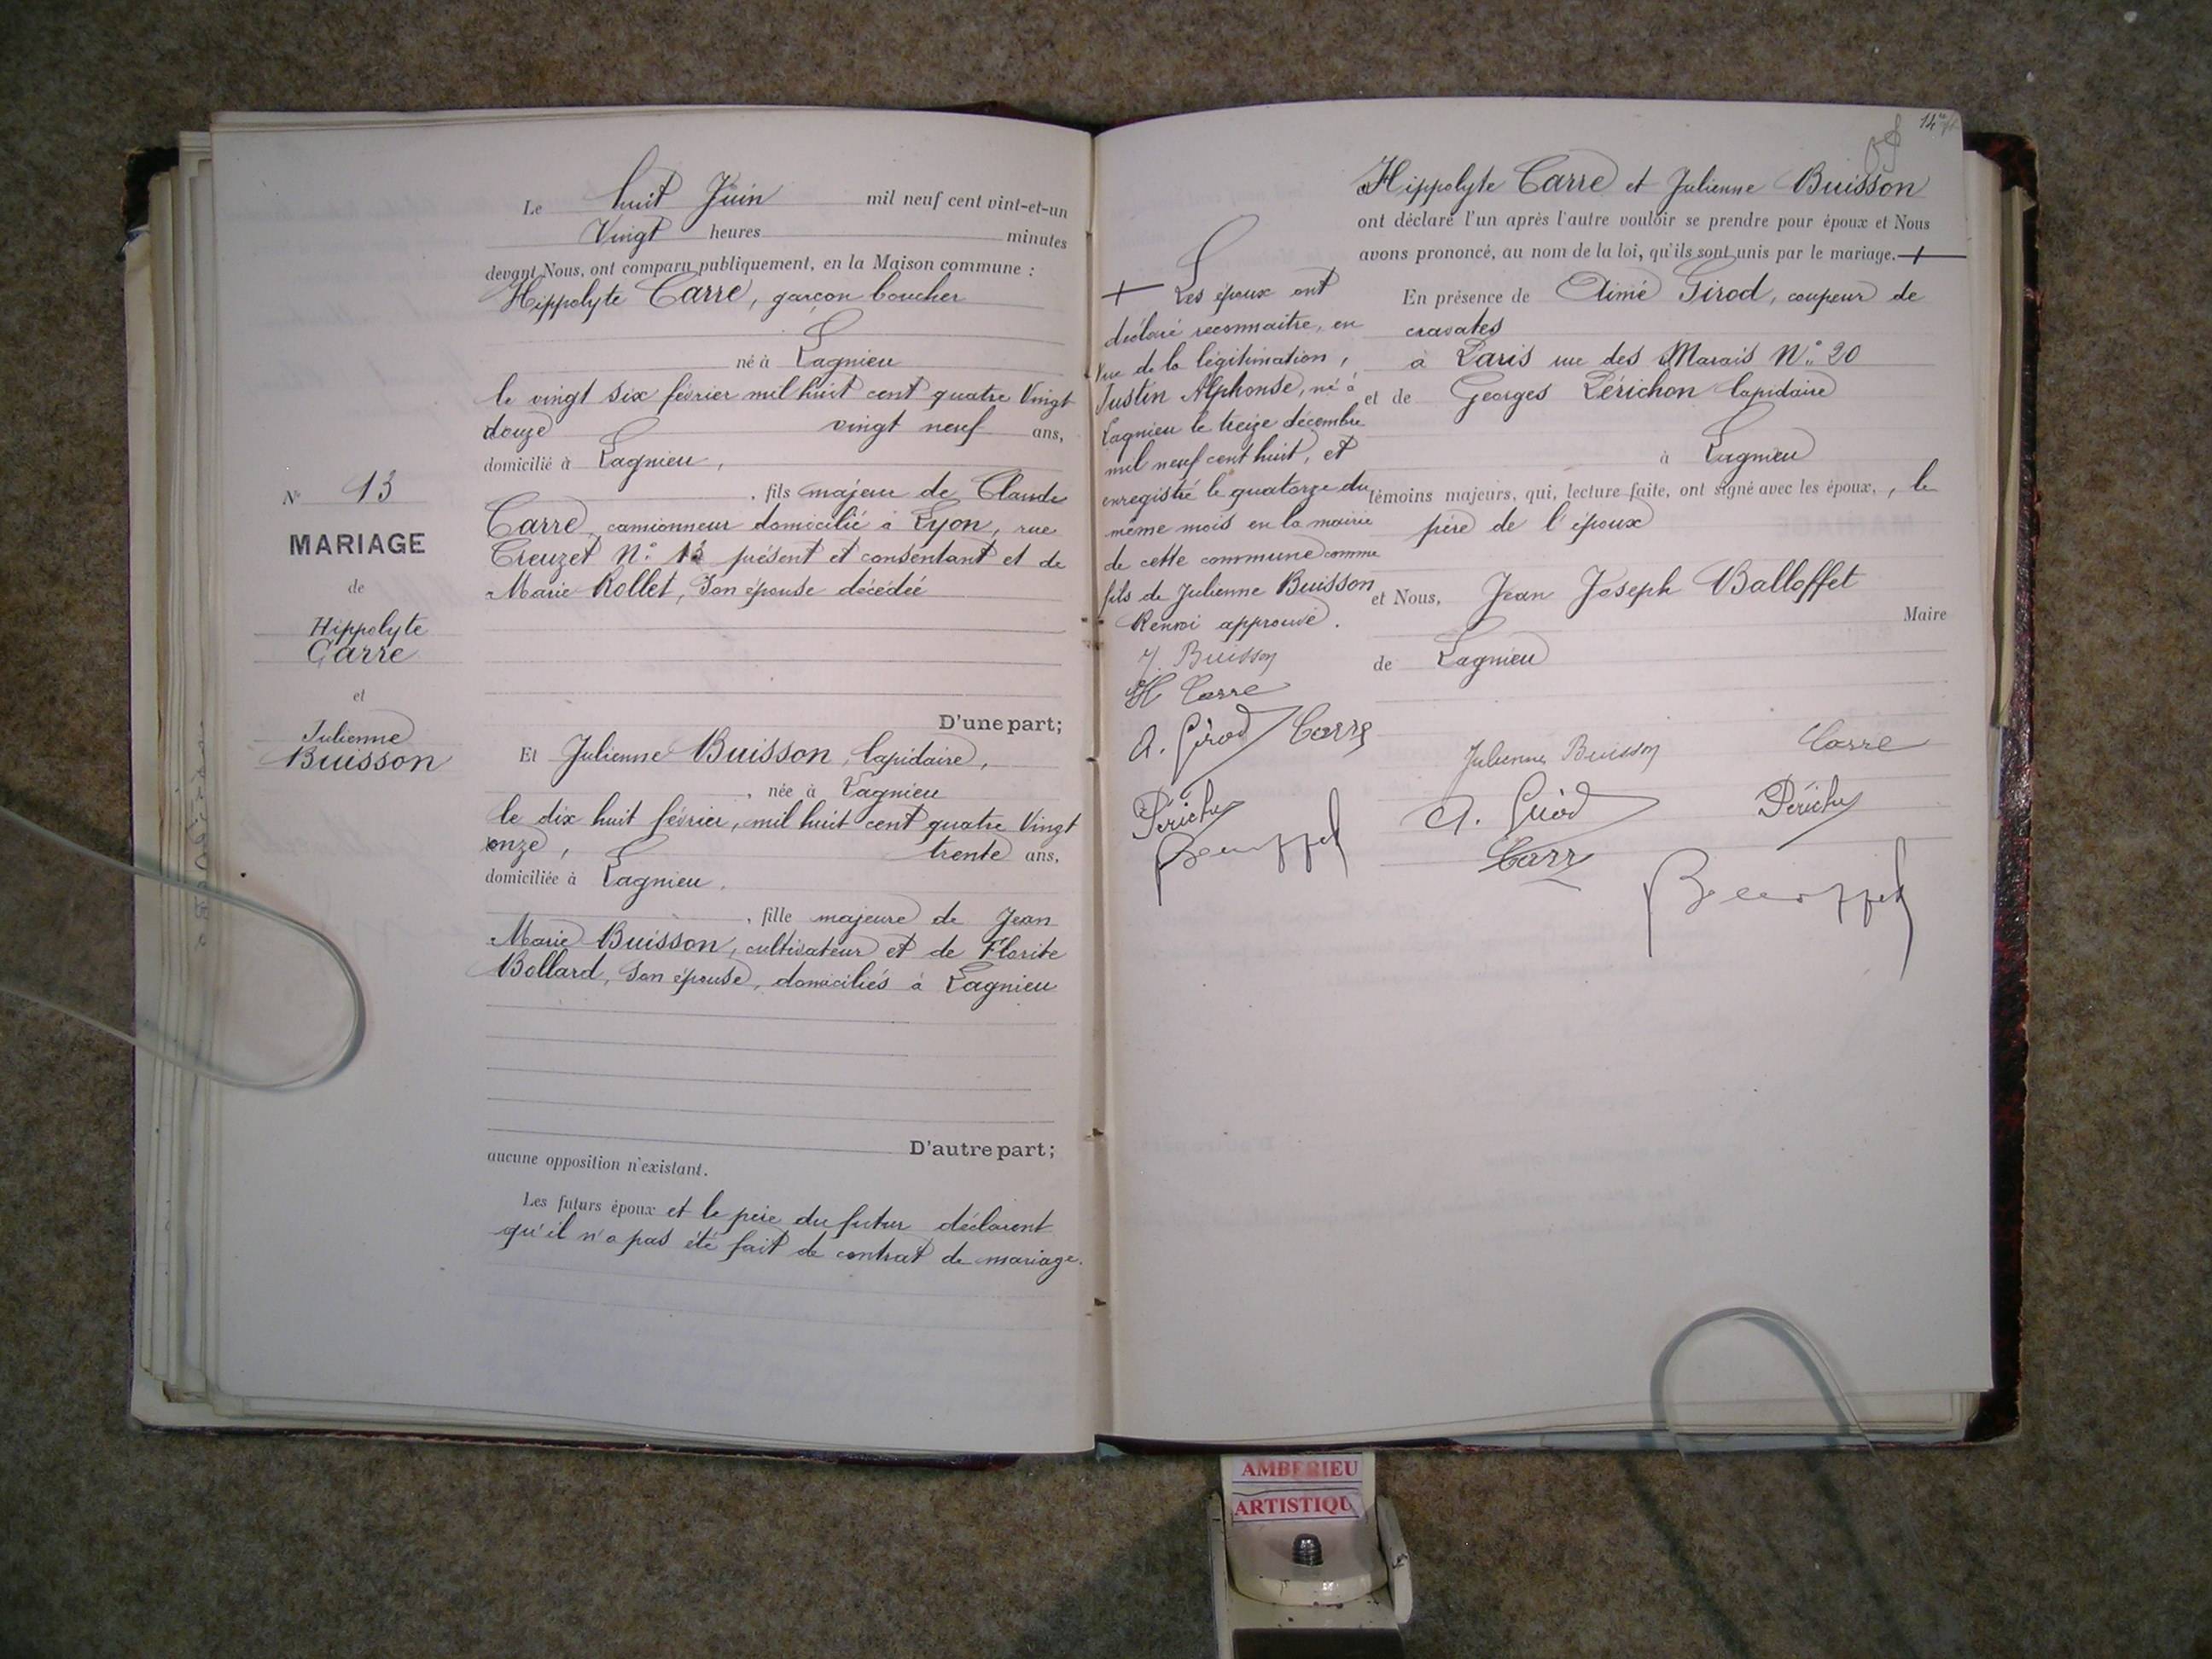 Nº 13
MARIAGE
de
Hippolyte
Carre
et
Julienne
Buisson
Le huit Juin mil neuf cent vint-et-un
Vingt heures minutes
devant Nous, ont comparu publiquement, en la Maison commune :
Hippolyte Carre, garçon boucher
né à Lagnieu
le vingt six février mil huit cent quatre Vingt
douze vingt neuf ans,
domicilié à Lagnieu,
, fils majeur de Claude
Carre, camionneur domicilié à Lyon, rue
Creuzet N° 13 présent et consentant et de
Marie Rollet, son épouse décédée
D'une part;
Et Julienne Buisson, lapidaire,
, née à Lagnieu
le dix huit février, mil huit cent quatre Vingt
onze, trente ans,
domiciliée à Lagnieu,
, fille majeure de Jean
Marie Buisson, cultivateur et de Florite
Bollard, son épouse, domiciliés à Lagnieu
D'autre part;
aucune opposition n'existant.
Les futurs époux et le père du futur déclarent
qu'il n'a pas été fait de contrat de mariage.
14
Hippolyte Carre et Julienne Buisson
ont déclaré l'un après l'autre vouloir se prendre pour époux et Nous
avons prononcé, au nom de la loi, qu'ils sont unis par le mariage. +
En présence de Aimé Girod, coupeur de
cravates
à Paris rue des Marais N° 20
et de Georges Périchon lapidaire
à Lagnieu
témoins majeurs, qui, lecture faite, ont signé avec les époux, , le
père de l'époux
et Nous, Jean Joseph Balloffet
Maire
de Lagnieu
Julienne Buisson Carre
A. Girod
Carre
+ Les époux ont
déclaré reconnaitre, en
vue de la légitimation,
Justin Alphonse, né à
Lagnieu le treize décembre
mil neuf cent huit, et
enregistré le quatorze du
même mois en la mairie
de cette commune comme
fils de Julienne Buisson
Renvoi approuvé.
J. Buisson
H Carre
A. Girod Carre
AMBERIEU
ARTISTIQU